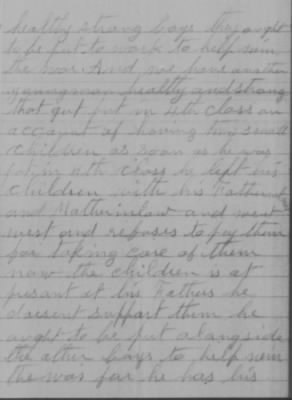 healthy strong boys they ought
to be put to work to help win
the war. And we have another
young man healthy and strong
that got put in 4th class on
account of having two small
children as soon as he was
put in 4th class he left his
children with his Father
and Mother inlaw and went
west and refuses to pay them
for taking care of them
now the children is at
pesant at his Fathers he
dosent support them he
ought to be put alangside
the other boys to help win
the war for he has his